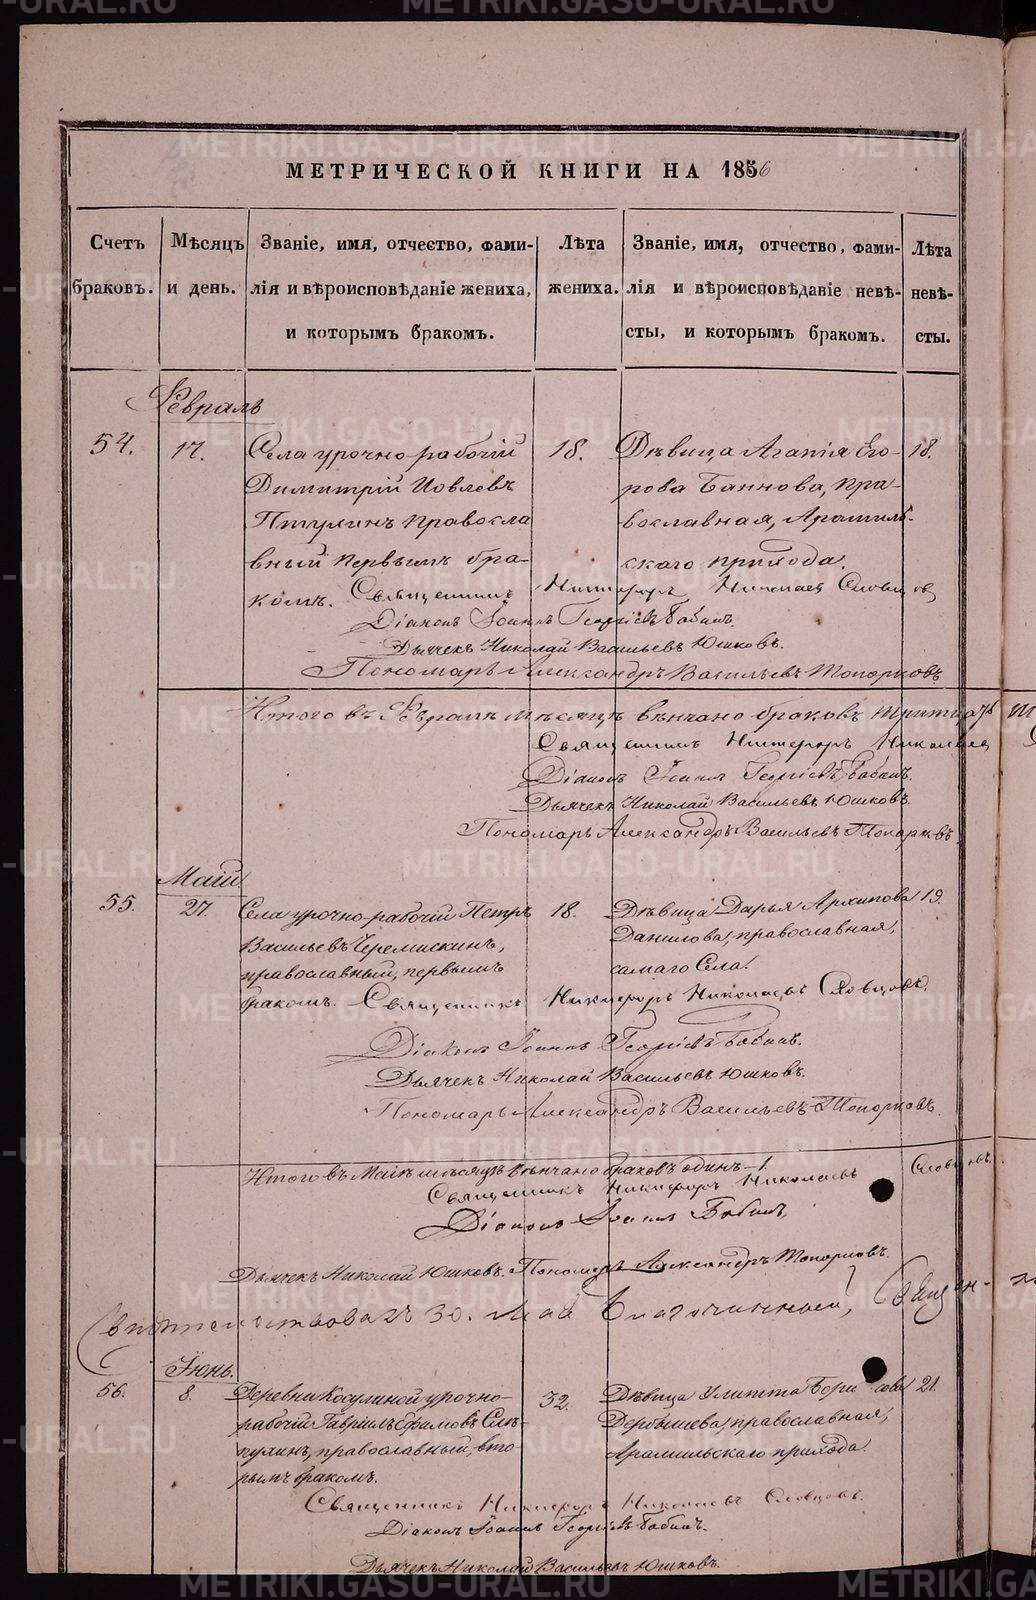 МЕТРИЧЕСКОЙ КНИГИ НА 1856
Счетъ браковъ.
Мѣсяцъ и день.
Званіе, имя, отчество, фами-
лія и вѣроисповѣданіе жениха,
и которымъ бракомъ.
Лѣта жениха.
Званіе, имя, отчество, фами-
лія и вѣроисповѣданіе невѣ-
сты, и которымъ бракомъ.
Лѣта невѣ-
сты.
Февраль
54. 17. Села урочно-рабочій 18. Дѣвица Агапія Его- 18.
Димитрій Іовлевъ рова Баннова, пра-
Птулинъ правосла вославная, Арамиль-
вный первымъ бра- скаго прихода.
комъ. Священникъ Никифоръ Николаевъ Словцовъ
Діаконъ Іоаннъ Георгіевъ Бабинъ.
Дьячекъ Николай Васильевъ Юшковъ.
Пономарь Александръ Васильевъ Топорковъ
Итого въ Февралѣ мѣсяцѣ вѣнчано браковъ
Священникъ Никифоръ Николаевъ
Діаконъ Іоаннъ Георгіевъ Бабинъ.
Дьячекъ Николай Васильевъ Юшковъ.
Пономарь Александръ Васильевъ Топорковъ.
Маій
55. 27. Села урочно-рабочій Петръ 18. Дѣвица Дарья Архипова 19.
Васильевъ Черемискинъ, Данилова, православная,
православный, первымъ самаго Села.
бракомъ. Священникъ Никифоръ Николаевъ Словцовъ.
Діаконъ Іоаннъ Георгіевъ Бабинъ.
Дьячекъ Николай Васильевъ Юшковъ.
Пономарь Александръ Васильевъ Топорковъ.
Итого въ Маіѣ мѣсяцѣ вѣнчано браковъ одинъ-1.
Священникъ Никифоръ Николаевъ Словцовъ.
Діаконъ Іоаннъ Бабинъ,
Дьячекъ Николай Юшковъ. Пономарь Александръ Топорковъ.
Свидѣтельствовалъ 30. Мая Благочинный, Священ-
Іюнь.
56. 8. Деревни Косулиной урочно- 32. Дѣвица Улитта Борисова 21.
рабочій Гавріилъ Ефимовъ Слѣ- Дербышева, православная,
пухинъ, православный, вто- Арамильскаго прихода.
рымъ бракомъ.
Священникъ Никифоръ Николаевъ Словцовъ.
Діаконъ Іоаннъ Георгіевъ Бабинъ.
Дьячекъ Николай Васильевъ Юшковъ.
METRIKI.GASO-URAL.RU